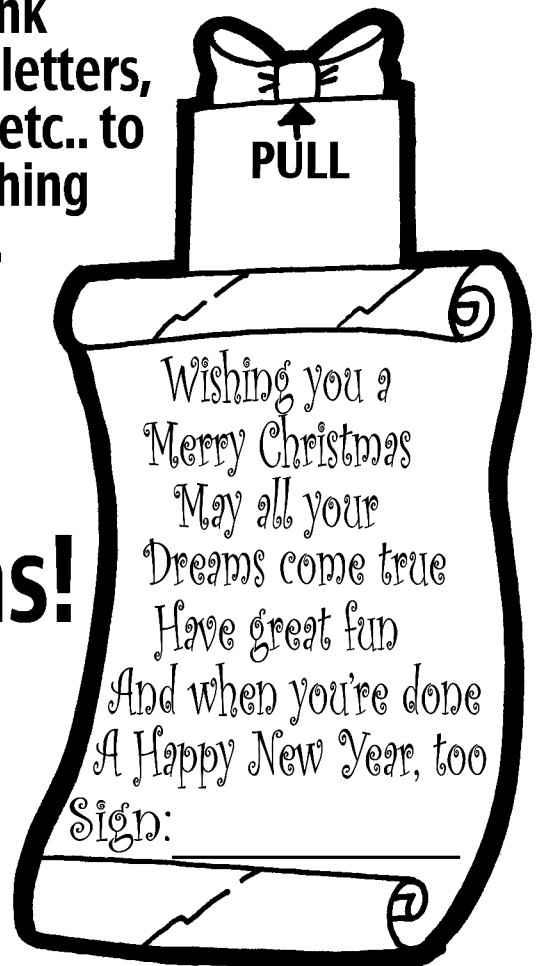 letters,
etc.. to
PULL
Wishing you a
Merry Christmas
May all your
Dreams come true
Have great fun
And when you're done
A Happy New Year, too
Sign: